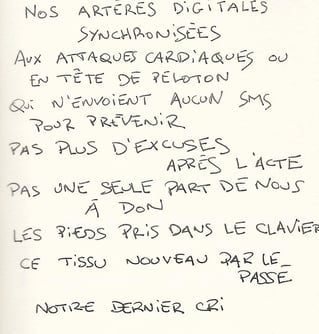 NOS ARTÈRES DIGITALES
SYNCHRONISÉES
AUX ATTAQUES CARDIAQUES OU
EN TÊTE DE PELOTON
QUI N'ENVOIENT AUCUN SMS
POUR PRÉVENIR
PAS PLUS D'EXCUSES
APRÈS L'ACTE
PAS UNE SEULE PART DE NOUS
À DON
LES PIEDS PRIS DANS LE CLAVIER
CE TISSU NOUVEAU PAR LE
PASSE
NOTRE DERNIER CRI